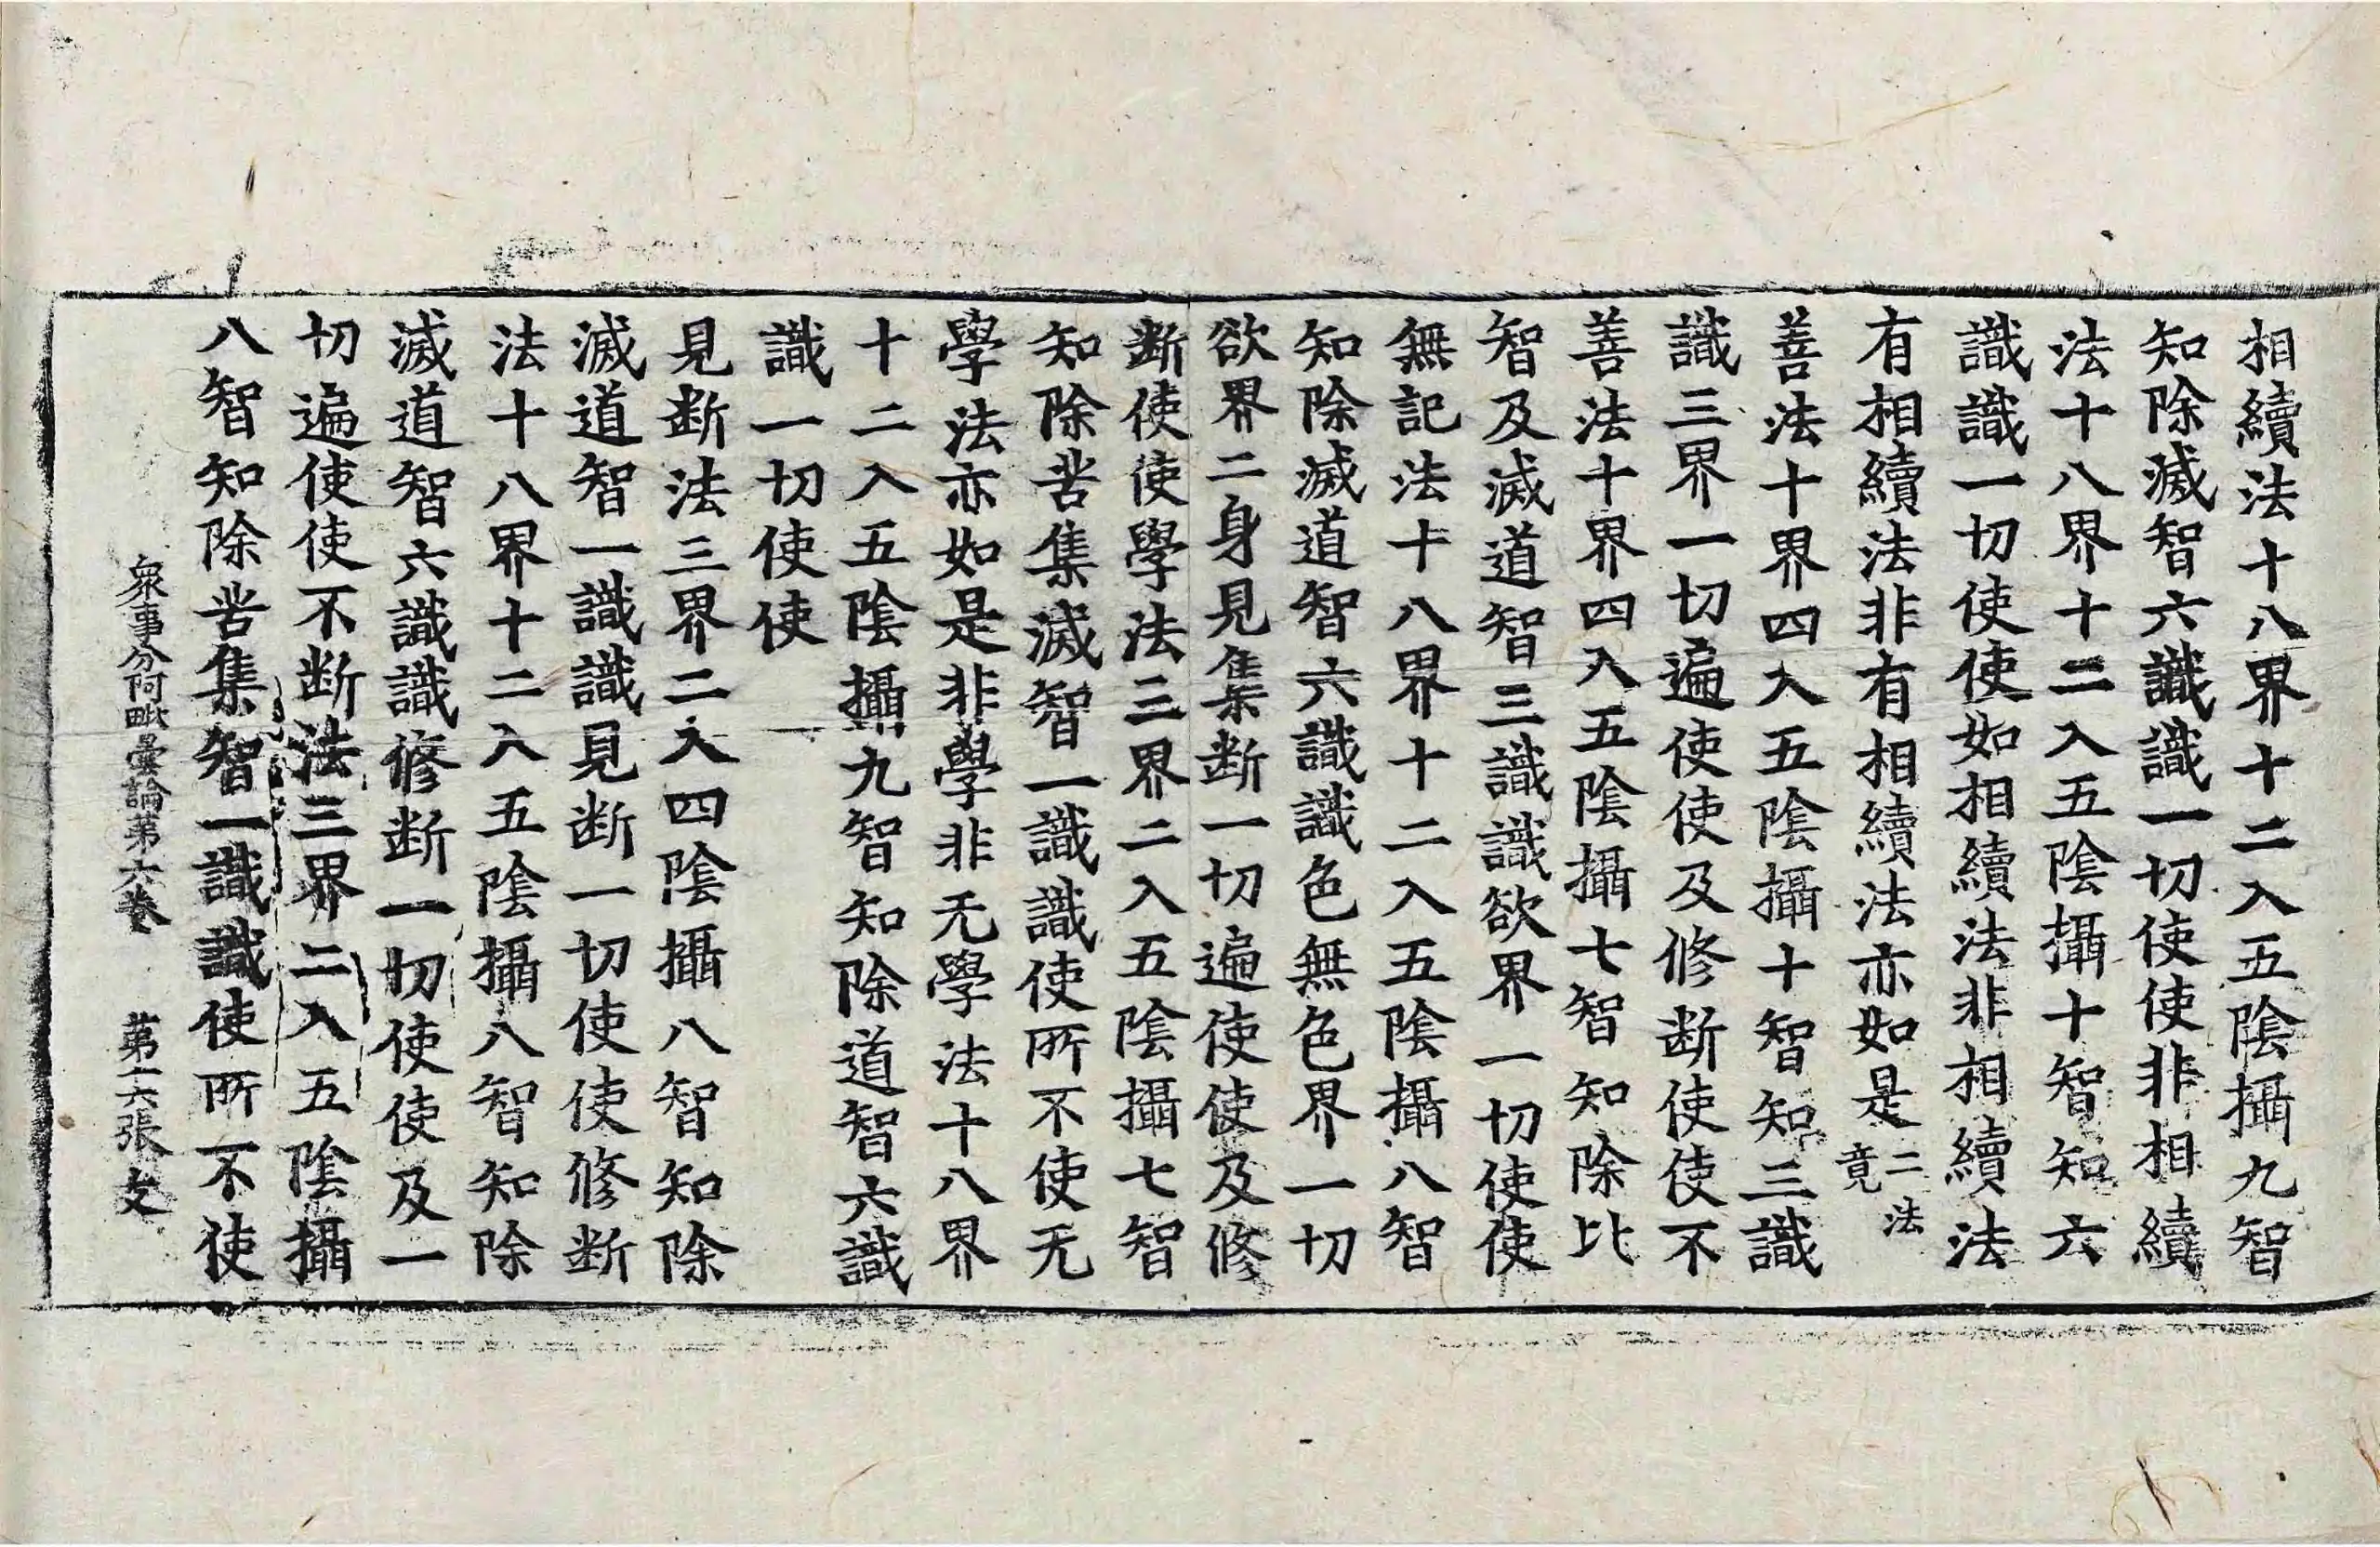 相續法十八界十二入五陰攝九智
知除滅智六識識一切使使非相續
法十八界十二入五陰攝十智知六
識識一切使使如相續法非相續法
有相續法非有相續法亦如是二法竟
善法十界四入五陰攝十智知三識
識三界一切遍使使及修断使使不
善法十界四入五陰攝七智知除比
智及滅道智三識識欲界一切使使
無記法十八界十二入五陰攝八智
知除滅道智六識識色無色界一切
欲界二身見集断一切遍使使及修
断使使學法三界二入五陰攝七智
知除苦集滅智一識識使所不使无
學法亦如是非學非无學法十八界
十二入五陰攝九智知除道智六識
識一切使使
見断法三界二入四陰攝八智知除
滅道智一識識見断一切使使修断
法十八界十二入五陰攝八智知除
滅道智六識識修断一切使使及一
切遍使使不断法三界二入五陰攝
八智知除苦集智一識識使所不使
衆事分阿毗曇論第六卷　第二六張　文